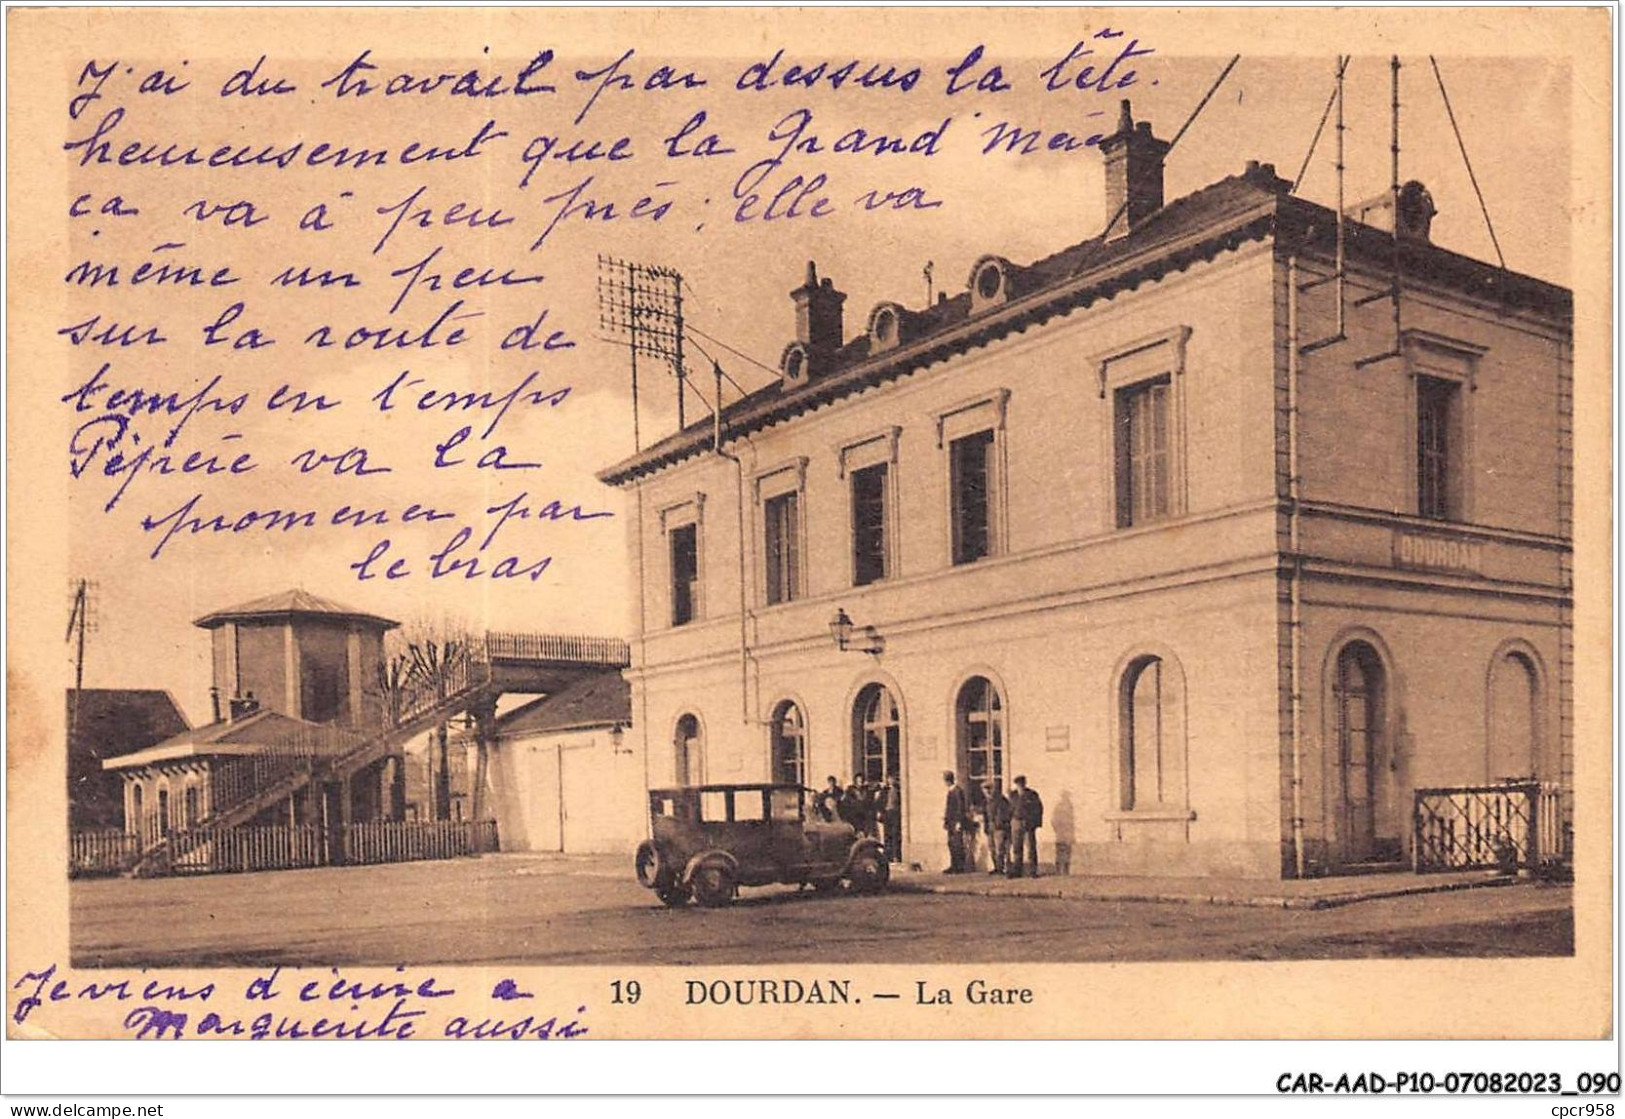 J'ai du travail par dessus la tête.
heureusement que la Grand'Mère
ça va à peu près; elle va
même un peu
sur la route de
temps en temps
Pépère va la
promener par
le bras
DOURDAN
Je viens d'écrire a
Marguerite aussi
19 DOURDAN. — La Gare
CAR-AAD-P10-07082023_090
delcampe.net
cpcr958